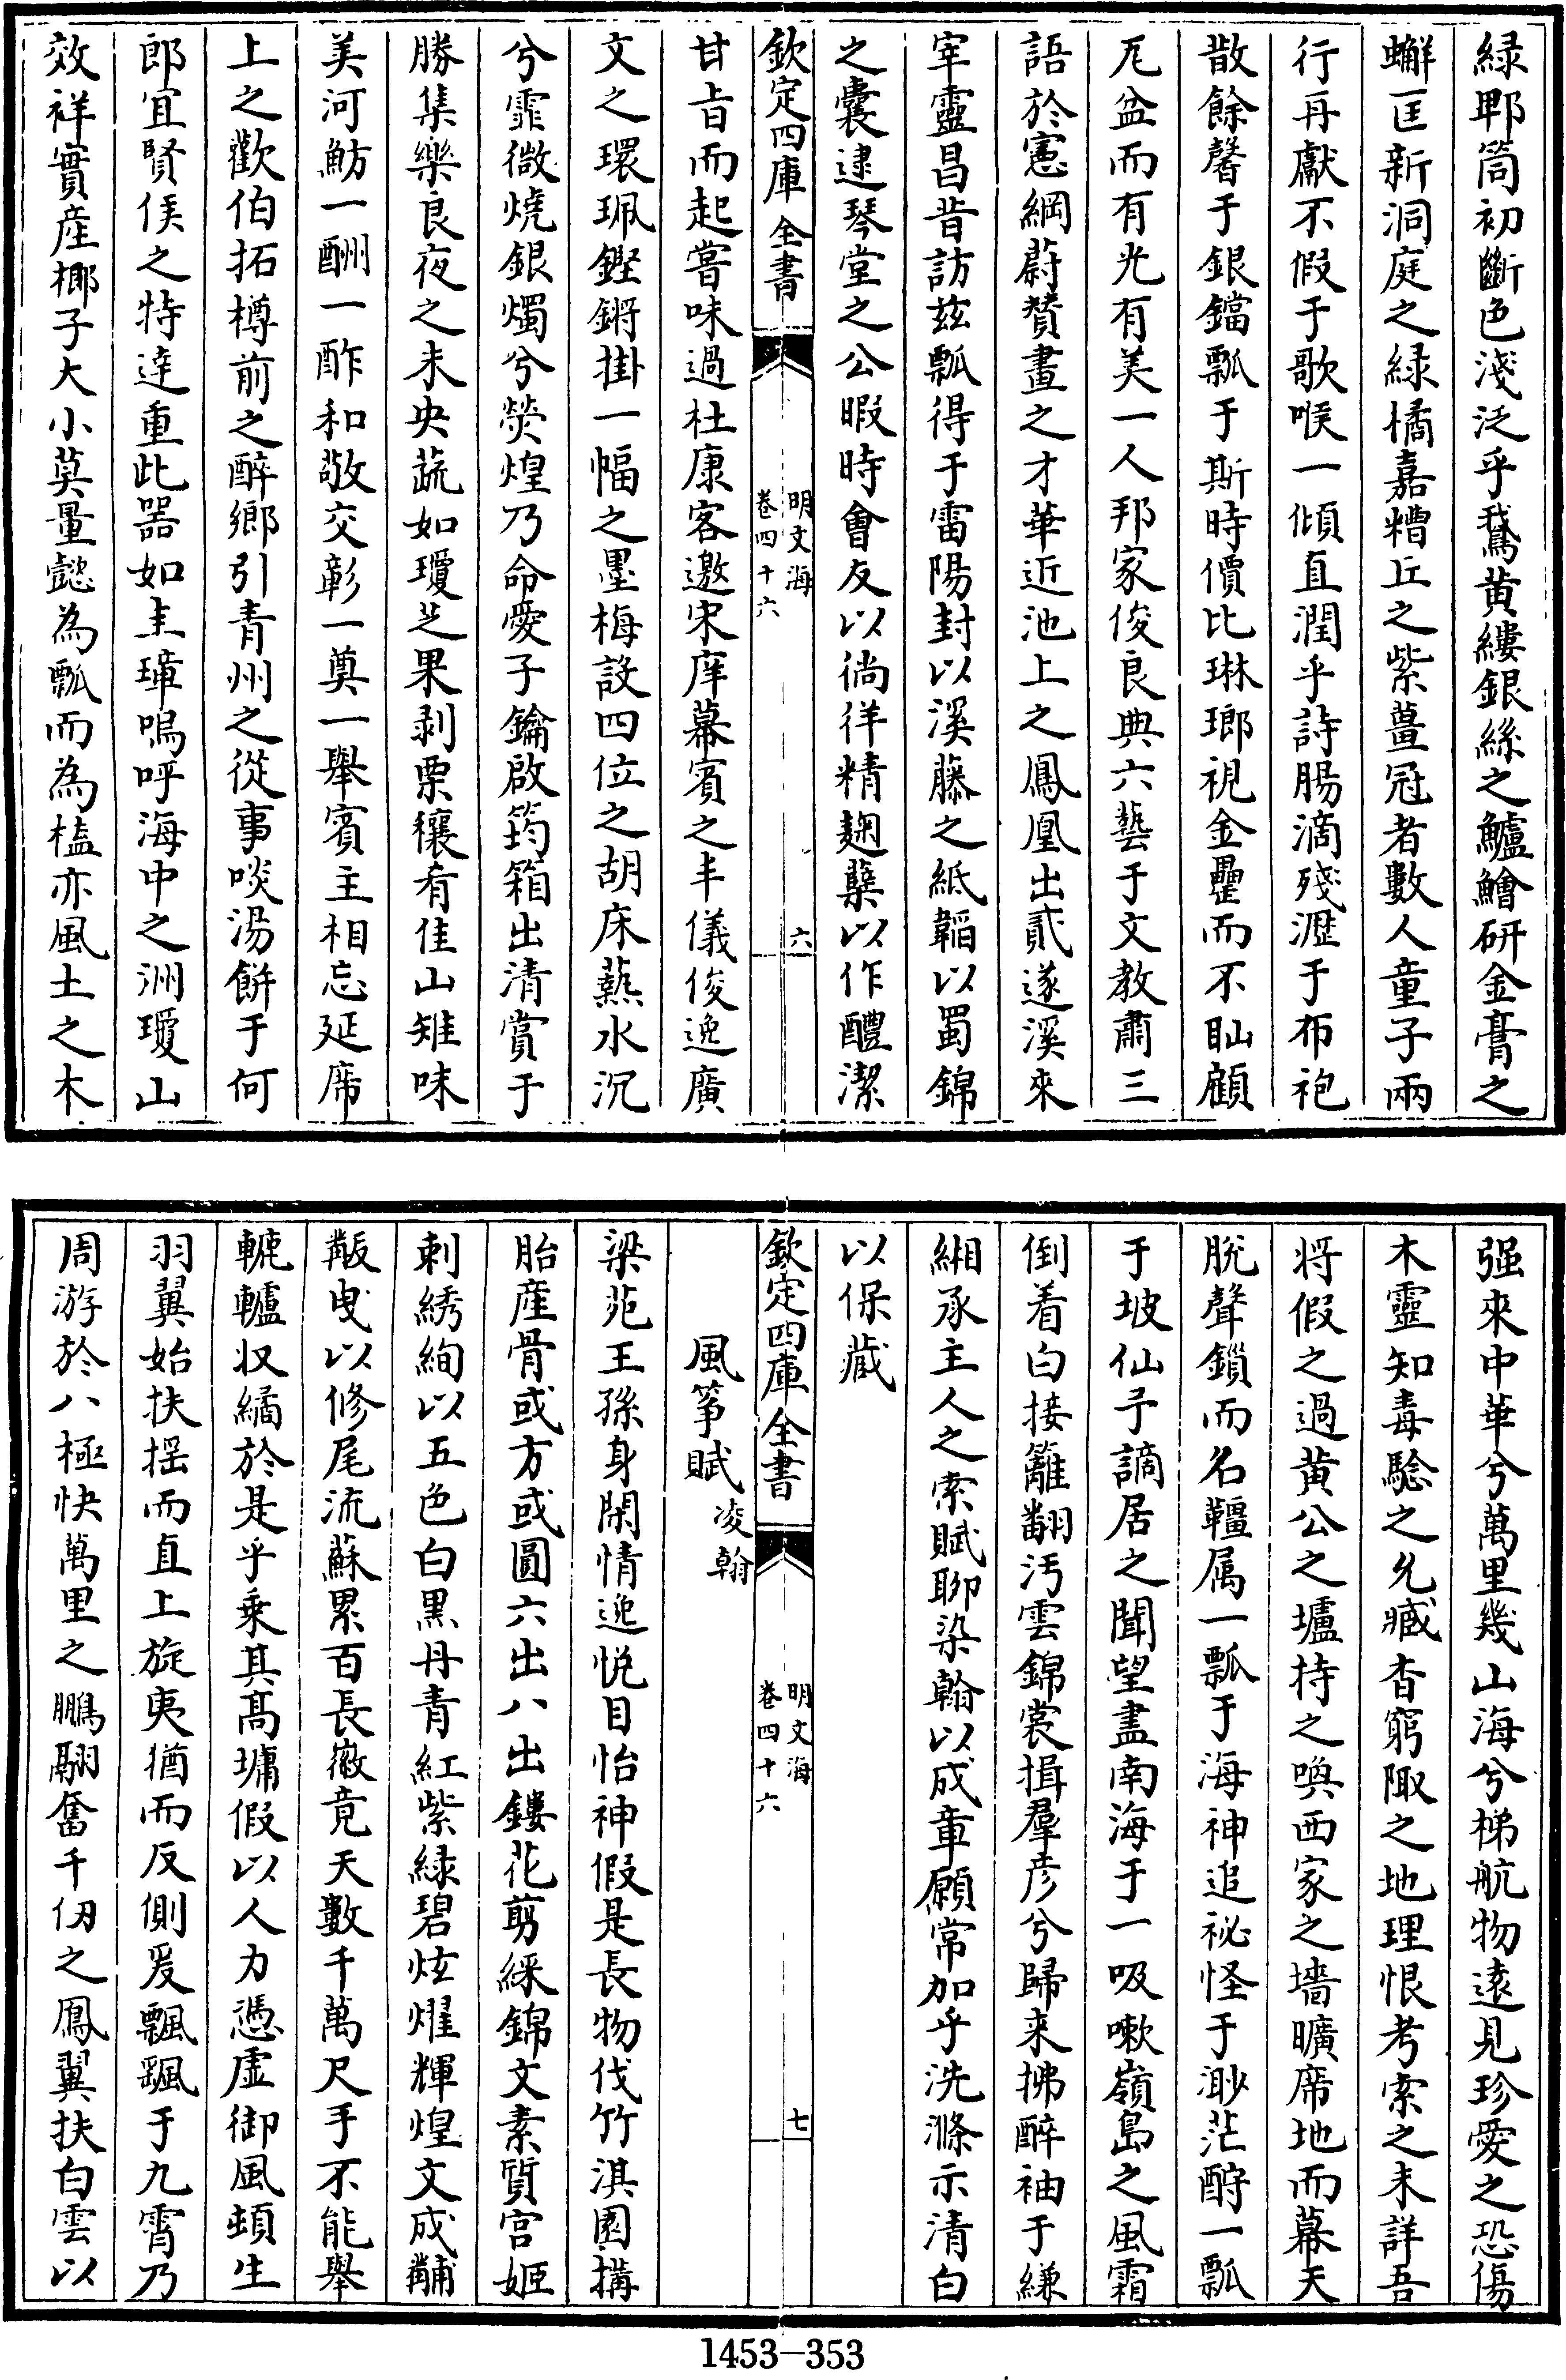 緑郫筒初斷色淺泛乎鵞黄縷銀絲之鱸鱠研金膏之
蠏匡新洞庭之緑橘嘉糟丘之紫薑冠者數人童子兩
行再獻不假于歌喉一傾直潤乎詩腸滴殘瀝于布袍
散餘馨于銀鐺瓢于斯時價比琳瑯視金罍而不眴顧
瓦盆而有光有美一人邦家俊良典六藝于文教肅三
語於憲綱蔚賛畫之才華近池上之鳳凰出貳遂溪來
宰靈昌昔訪兹瓢得于雷陽封以溪藤之紙韜以蜀錦
之囊逮琴堂之公暇時會友以徜徉精麹糵以作醴潔
欽定四庫全書
明文海
卷四十六
六
甘㫖而起嘗味過杜康客邀宋庠幕賓之丰儀俊逸廣
文之環珮鏗鏘掛一幅之墨梅設四位之胡床爇水沉
兮霏微燒銀燭兮熒煌乃命愛子鑰啟筠箱出清賞于
勝集樂良夜之未央蔬如瓊芝果剥栗穰肴佳山雉味
美河魴一酬一酢和敬交彰一奠一舉賓主相忘延席
上之歡伯拓樽前之醉鄉引青州之從事啖湯餅于何
郎宜賢侯之特達重此器如圭璋嗚呼海中之洲瓊山
效祥實産椰子大小莫量懿為瓢而為榼亦風土之木
强來中華兮萬里幾山海兮梯航物逺見珍愛之恐傷
木靈知毒騐之允臧杳窮陬之地理恨考索之未詳吾
将假之過黄公之壚持之喚西家之墻曠席地而幕天
脱聲鎖而名韁属一瓢于海神追祕怪于渺茫酹一瓢
于坡仙予謫居之聞望盡南海于一吸嗽嶺島之風霜
倒着白接籬翻汚雲錦裳揖羣彦兮歸来拂醉袖于縑
緗承主人之索賦聊染翰以成章願常加乎洗滌示清白
以保藏
欽定四庫全書
明文海
卷四十六
七
風筝賦凌翰
梁苑王孫身閑情逸悦目怡神假是長物伐竹淇園搆
胎産骨或方或圓六出八出鏤花剪綵錦文素質宫姬
刺綉絢以五色白黒丹青紅紫緑碧炫燿輝煌文成黼
黻曳以修尾流蘇累百長徽竟天數千萬尺手不能舉
轆轤収繘於是乎乘其髙墉假以人力憑虚御風頓生
羽翼始扶揺而直上旋夷猶而反側爰飄颻于九霄乃
周游於八極快萬里之鵬翮奮千仞之鳳翼扶白雲以
1453—353